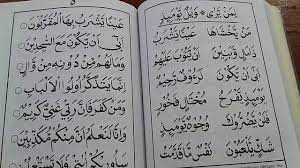 لِمَنْ يَّرٰى وَيْلٌ يَّوْمَئِذٍ
مَنْ يَّخْشٰهَا
اَنْ يَّكُوْنَ لَرَءُوْفٌ رَّحِيْمٌ
يَوْمَئِذٍ يَّفْرَحُ مُخْتَالٍ فَخُوْرٍ
وُجُوْهٌ يَّوْمَئِذٍ
نَفْسٌ مَّا قَدَّمَتْ
عَيْنًا يَّشْرَبُ بِهَا الْمُقَرَّبُوْنَ
اَبٰى اَنْ يَّكُوْنَ مَعَ السّٰجِدِيْنَ
وَمَا لَهُمْ مِّنْ دُوْنِهٖ مِنْ وَّالٍ
اِنَّمَا يَتَذَكَّرُ اُولُوا الْاَلْبَابِ
وَمَنْ كَفَرَ فَاِنَّ رَبِّيْ غَنِيٌّ كَرِيْمٌ
وَاِنَّا لَنَعْلَمُ اَنَّ مِنْكُمْ مُّكَذِّبِيْنَ